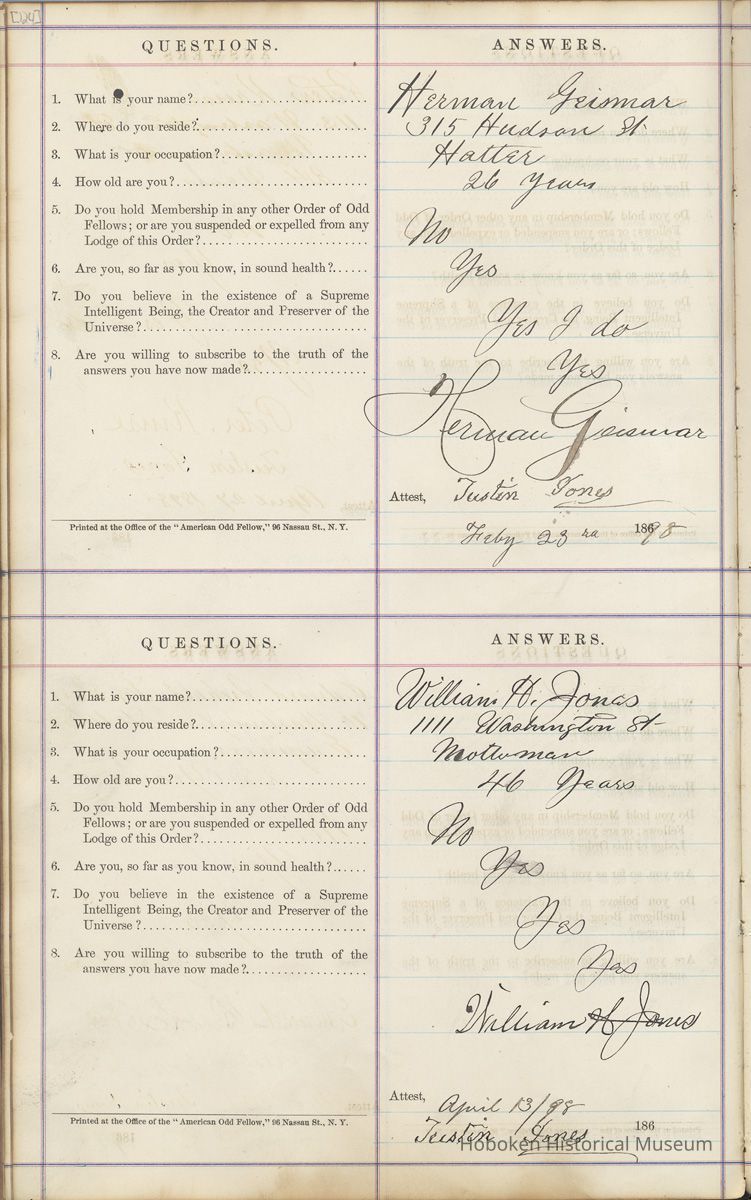 [124]
QUESTIONS. ANSWERS.
1. What is your name? Herman Geismar
2. Where do you reside? 315 Hudson St
3. What is your occupation? Hatter
4. How old are you? 26 years
5. Do you hold Membership in any other Order of Odd
Fellows; or are you suspended or expelled from any
Lodge of this Order? No
6. Are you, so far as you know, in sound health? Yes
7. Do you believe in the existence of a Supreme
Intelligent Being, the Creator and Preserver of the
Universe? Yes I do
8. Are you willing to subscribe to the truth of the
answers you have now made? Yes
Herman Geismar
Attest, Justin Jones
Printed at the Office of the "American Odd Fellow," 96 Nassau St., N. Y.
Feby 23rd 18698
QUESTIONS. ANSWERS.
1. What is your name? William H. Jones
2. Where do you reside? 1111 Washington St
3. What is your occupation? Mottorman
4. How old are you? 46 Years
5. Do you hold Membership in any other Order of Odd
Fellows; or are you suspended or expelled from any
Lodge of this Order? No
6. Are you, so far as you know, in sound health? Yes
7. Do you believe in the existence of a Supreme
Intelligent Being, the Creator and Preserver of the
Universe? Yes
8. Are you willing to subscribe to the truth of the
answers you have now made? Yes
William H Jones
Attest, April 13/98
Printed at the Office of the "American Odd Fellow," 96 Nassau St., N. Y.
Justin Jones 186
Hoboken Historical Museum